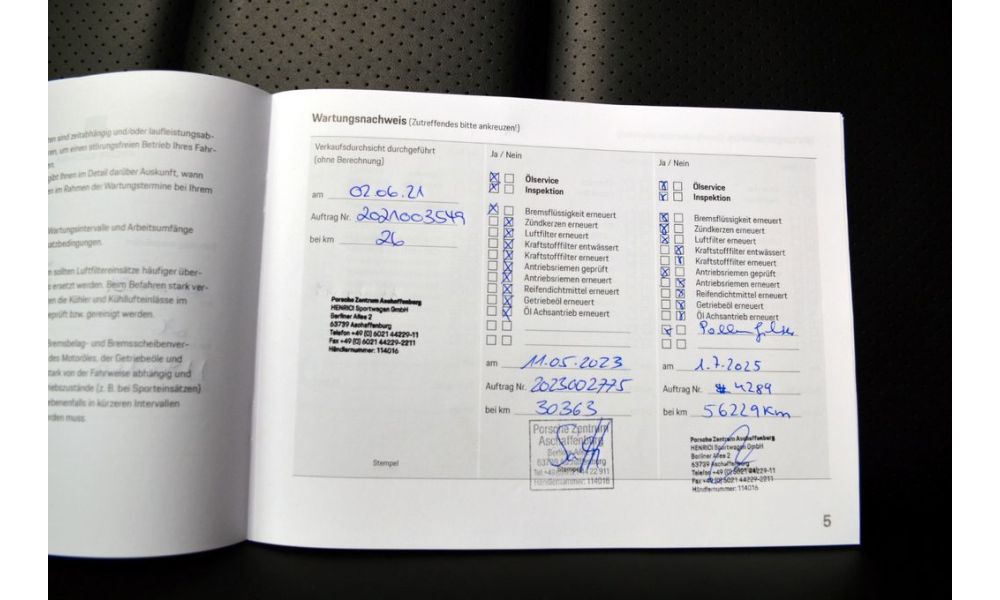 en sind zeitabhängig und/oder laufleistungsab-
en, um einen störungsfreien Betrieb Ihres Fahr-
en.
gibt Ihnen im Detail darüber Auskunft, wann
en im Rahmen der Wartungstermine bei Ihrem
Wartungsintervalle und Arbeitsumfänge
atzbedingungen.
n sollten Luftfiltereinsätze häufiger über-
s ersetzt werden. Beim Befahren stark ver-
en die Kühler und Kühllufteinlässe im
eprüft bzw. gereinigt werden.
Bremsbelag- und Bremsscheibenver-
des Motoröles, der Getriebeöle und
tark von der Fahrweise abhängig und
iebszustände (z. B. bei Sporteinsätzen)
ebenenfalls in kürzeren Intervallen
rden muss.
Wartungsnachweis (Zutreffendes bitte ankreuzen!)
Verkaufsdurchsicht durchgeführt
(ohne Berechnung)
am 02.06.21
Auftrag Nr. 2021003549
bei km 26
Porsche Zentrum Aschaffenburg
HENRICI Sportwagen GmbH
Berliner Allee 2
63739 Aschaffenburg
Telefon +49 (0) 6021 44229-11
Fax +49 (0) 6021 44229-2211
Händlernummer: 114016
Stempel
Ja / Nein
Ölservice
Inspektion
Bremsflüssigkeit erneuert
Zündkerzen erneuert
Luftfilter erneuert
Kraftstofffilter entwässert
Kraftstofffilter erneuert
Antriebsriemen geprüft
Antriebsriemen erneuert
Reifendichtmittel erneuert
Getriebeöl erneuert
Öl Achsantrieb erneuert
am 11.05.2023
Auftrag Nr. 2023002775
bei km 30363
Porsche Zentrum
Aschaffenburg
Berliner Allee
63739 Aschaffenburg
Stempel
Händlernummer: 114016
Ja / Nein
Ölservice
Inspektion
Bremsflüssigkeit erneuert
Zündkerzen erneuert
Luftfilter erneuert
Kraftstofffilter entwässert
Kraftstofffilter erneuert
Antriebsriemen geprüft
Antriebsriemen erneuert
Reifendichtmittel erneuert
Getriebeöl erneuert
Öl Achsantrieb erneuert
Pollenfilter
am 1.7.2025
Auftrag Nr. # 4289
bei km 56229 km
Porsche Zentrum Aschaffenburg
HENRICI Sportwagen GmbH
Berliner Allee 2
63739 Aschaffenburg
Telefon +49 (0) 6021 44229-11
Fax +49 (0) 6021 44229-2211
Händlernummer: 114016
5